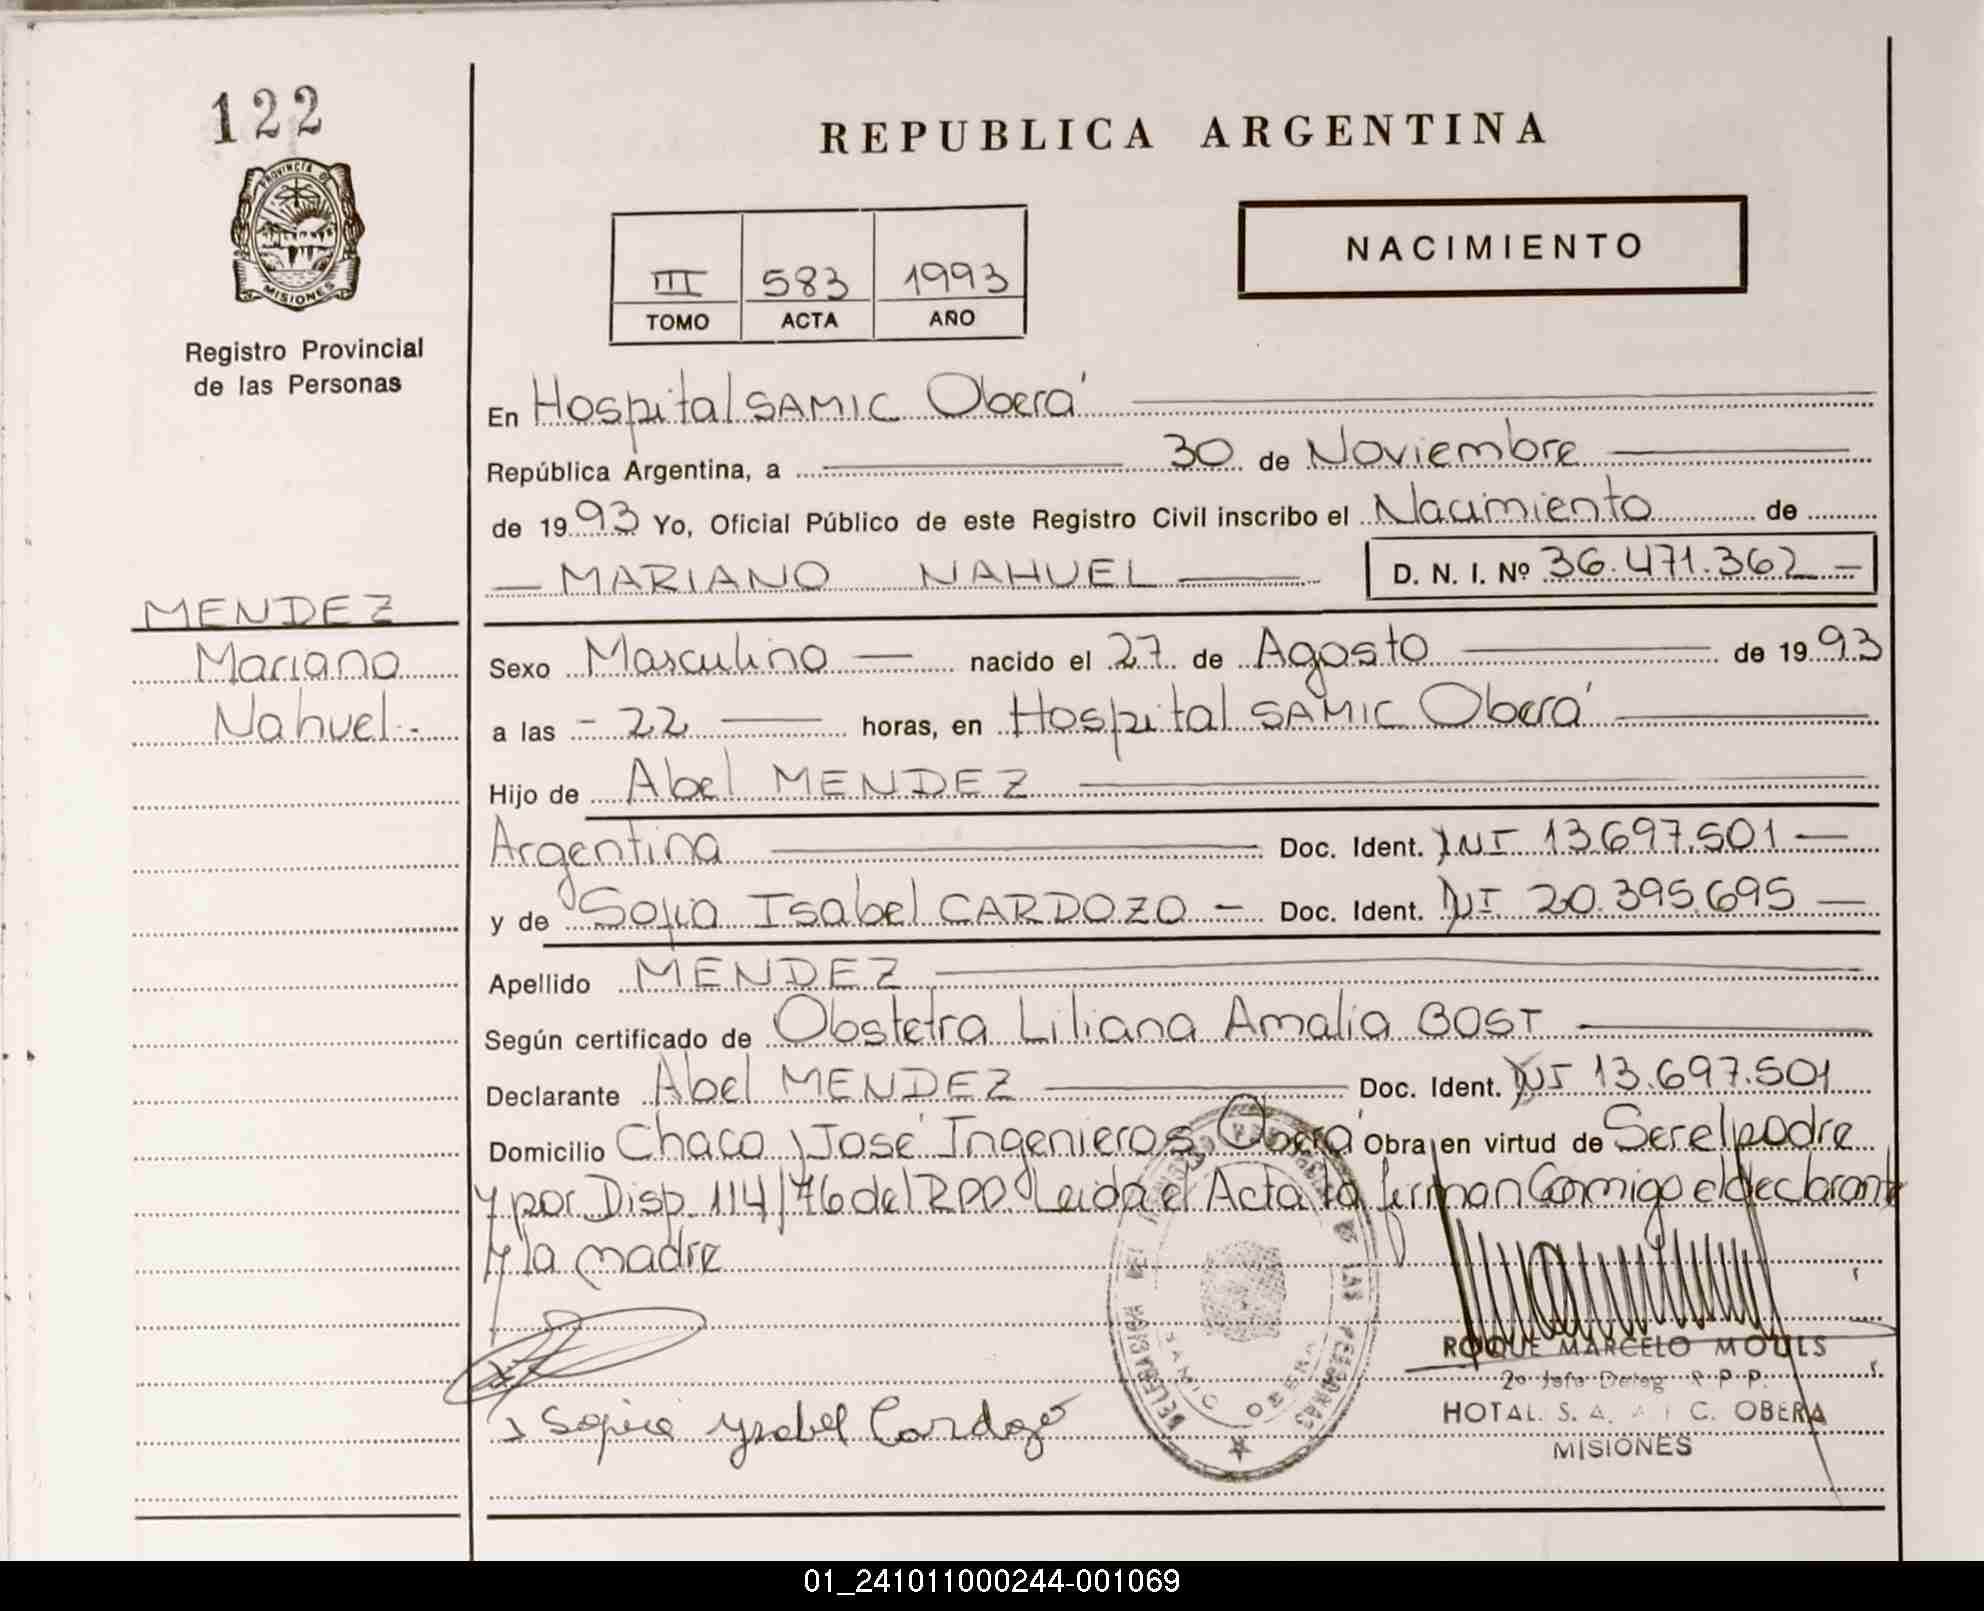 122
REPUBLICA ARGENTINA
PROVINCIA DE
MISIONES
Registro Provincial
de las Personas
III 583 1993
TOMO ACTA AÑO
NACIMIENTO
En Hospital SAMIC Oberá
República Argentina, a 30 de Noviembre
de 1993 Yo, Oficial Público de este Registro Civil inscribo el Nacimiento de
MARIANO NAHUEL D. N. I. Nº 36.471.362
MENDEZ
Mariano
Nahuel
Sexo Masculino nacido el 27 de Agosto de 1993
a las 22 horas, en Hospital SAMIC Oberá
Hijo de Abel MENDEZ
Argentina Doc. Ident. DNI 13.697.501
y de Sofia Isabel CARDOZO Doc. Ident. DNI 20.395.695
Apellido MENDEZ
Según certificado de Obstetra Liliana Amalia BOST
Declarante Abel MENDEZ Doc. Ident. DNI 13.697.501
Domicilio Chaco y José Ingenieros Oberá Obra en virtud de Ser el padre
y por Disp. 114/76 del RPP Leida el Acta la firman Conmigo el declarante
y la madre
Sofia Ysabel Cardozo
DELEGACION
LAS PERSONAS
SAMIC OBERA
ROQUE MARCELO MOULS
2º Jefe Deleg R.P.P.
HOTAL. S. A. C. OBERA
MISIONES
01_241011000244-001069